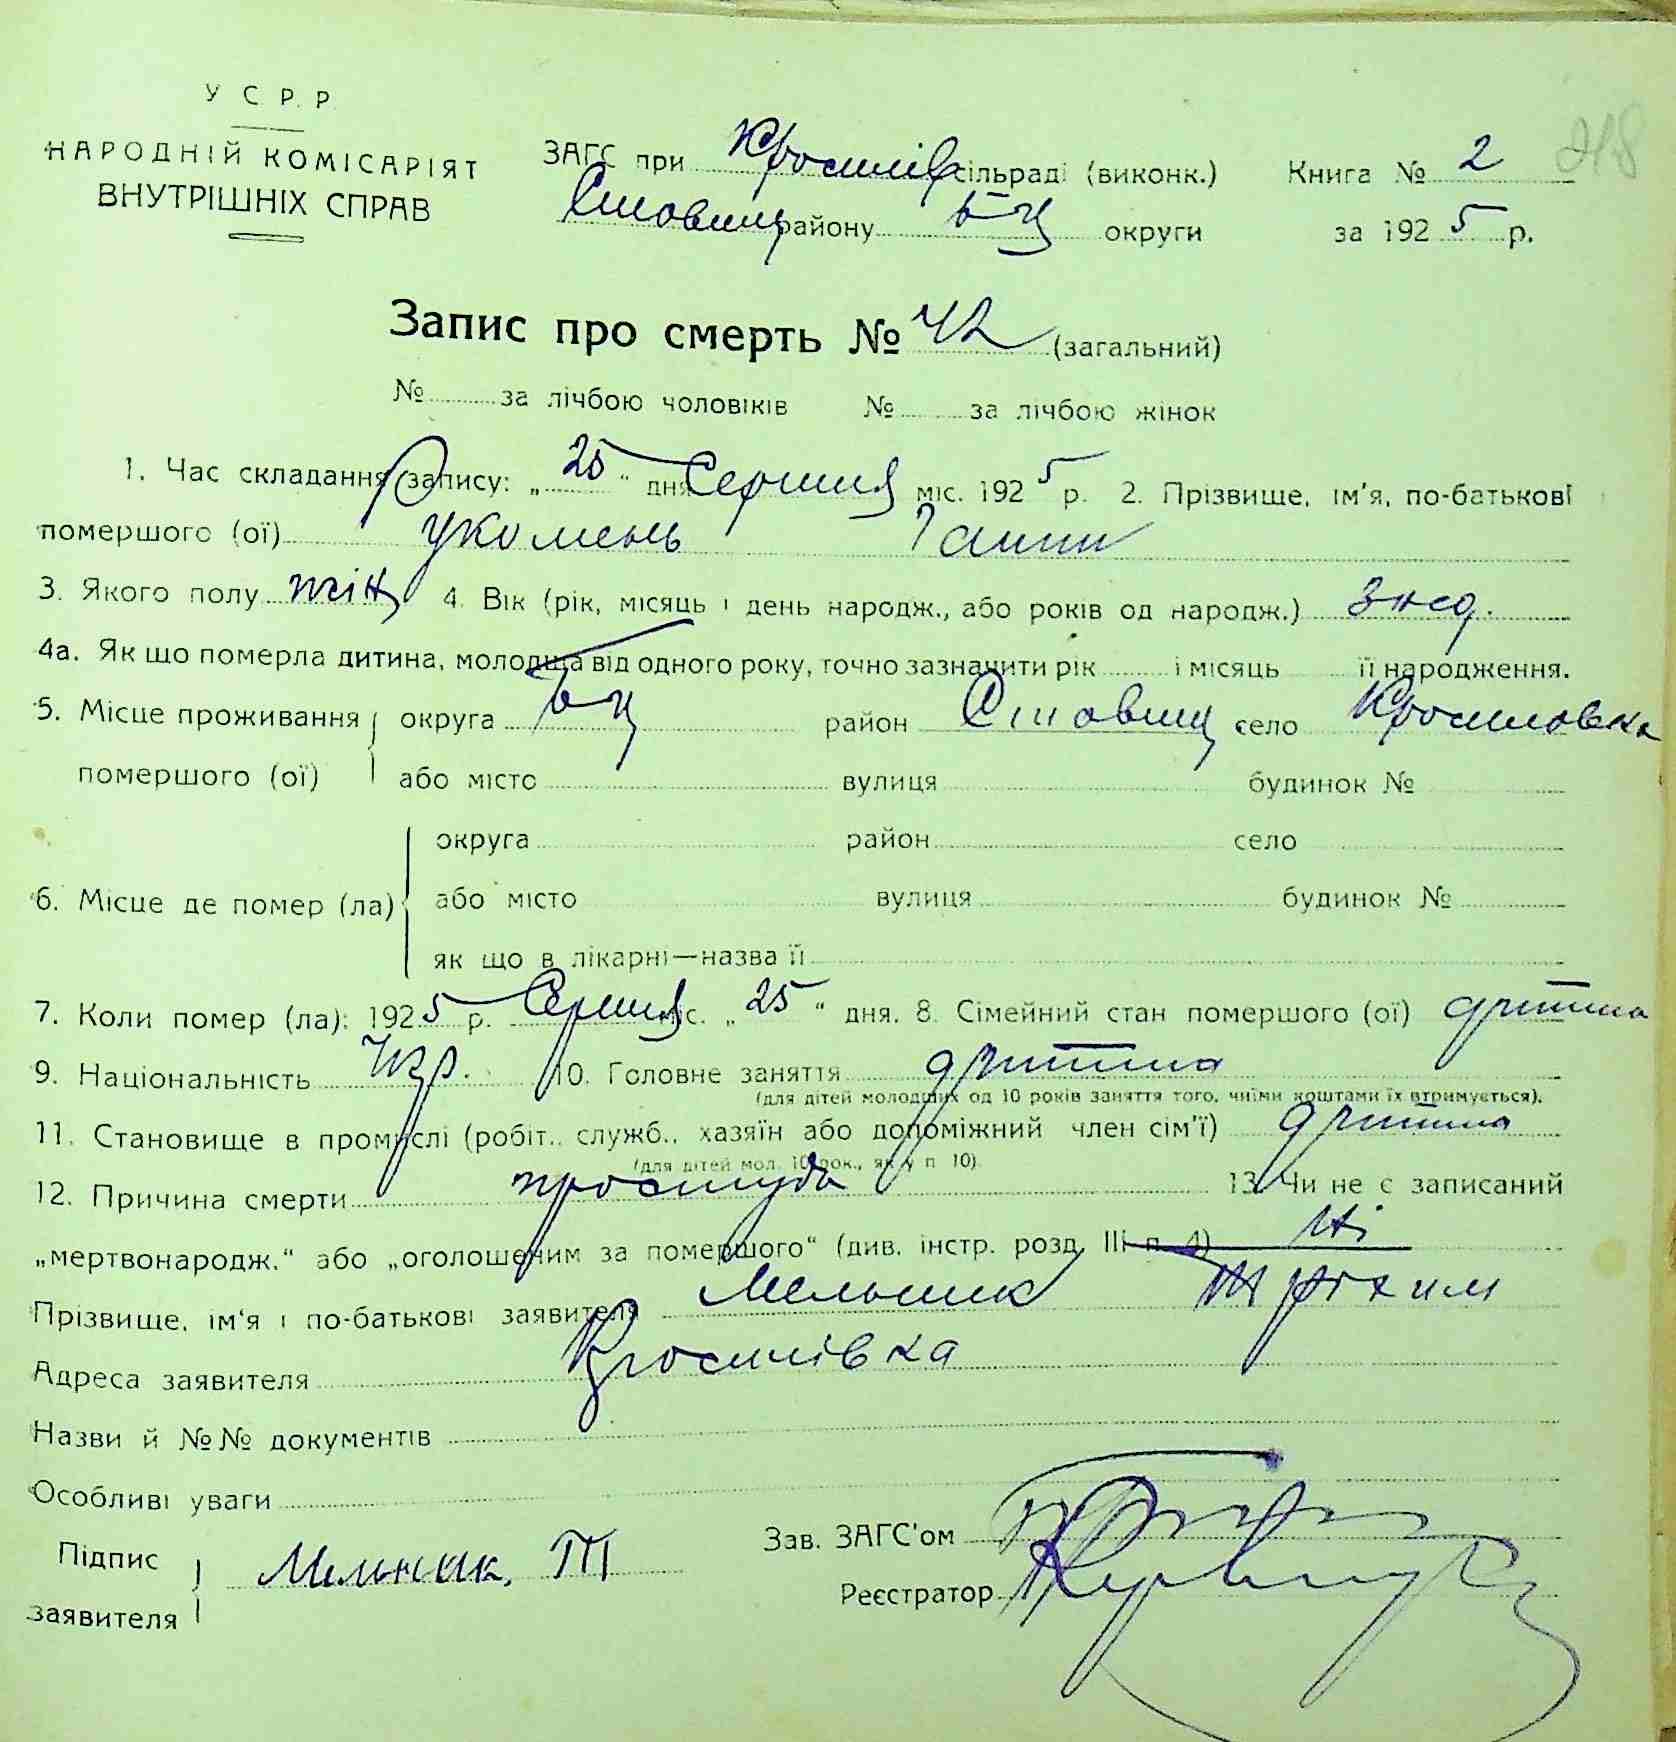 У С Р Р
НАРОДНІЙ КОМІСАРІЯТ
ВНУТРІШНІХ СПРАВ
218
ЗАГС при сільраді (виконк.) Книга № 2
Ставищ району Б-Ц округи за 1925 р.
Запис про смерть № 42 (загальний)
№ за лічбою чоловіків № за лічбою жінок
1. Час складання запису: „25" дня Серпня міс. 1925 р. 2. Прізвище, ім'я, по-батькові
помершого (ої)
3. Якого полу жін 4. Вік (рік, місяць і день народж., або років од народж.) 3 нед.
4а. Як що померла дитина, молодща від одного року, точно зазначити рік і місяць її народження.
5. Місце проживання округа Б-Ц район Ставищ село
помершого (ої) або місто вулиця будинок №
округа район село
6. Місце де помер (ла) або місто вулиця будинок №
як що в лікарні—назва її
7. Коли помер (ла): 1925 р. Серпня міс. „25" дня. 8. Сімейний стан помершого (ої) дитина
9. Національність Укр. 10. Головне заняття дитина
(для дітей молодших од 10 років заняття того, чиїми коштами їх втримується).
11. Становище в промислі (робіт., служб., хазяїн або допоміжний член сім'ї) дитина
(для дітей мол. 10 рок., як у п 10).
12. Причина смерти простуда 13. Чи не є записаний
„мертвонародж." або „оголошеним за помершого" (див. інстр. розд. III п. 4) Ні
Прізвище, ім'я і по-батькові заявителя Мельник
Адреса заявителя
Назви й №№ документів
Особливі уваги
Підпис заявителя Мельник. Т
Зав. ЗАГС'ом
Реєстратор